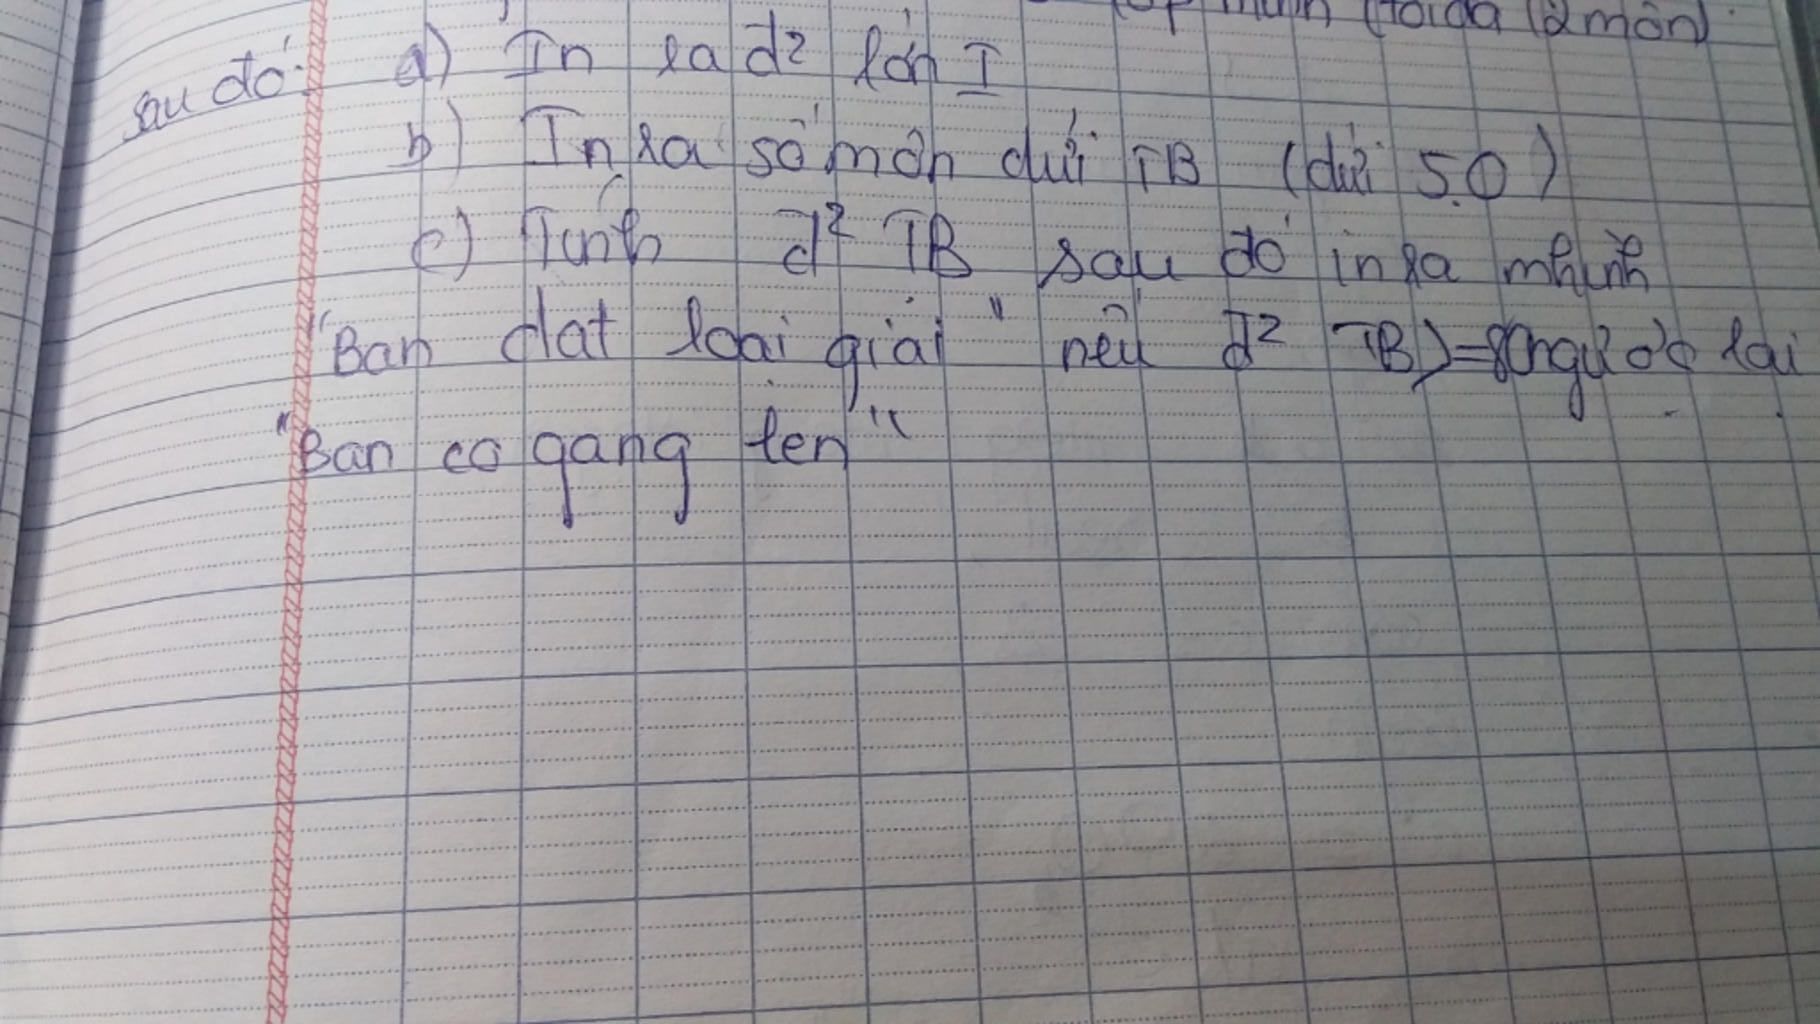 (tối đa 12 môn)
sau đó: a) In ra đ² lớn I
b) In ra số môn dưới TB (dưới 5.0)
c) Tính đ² TB sau đó in ra mhình
"Ban dat loai giai" nếu đ² TB >= 8 ngược lại
"Ban co gang len"